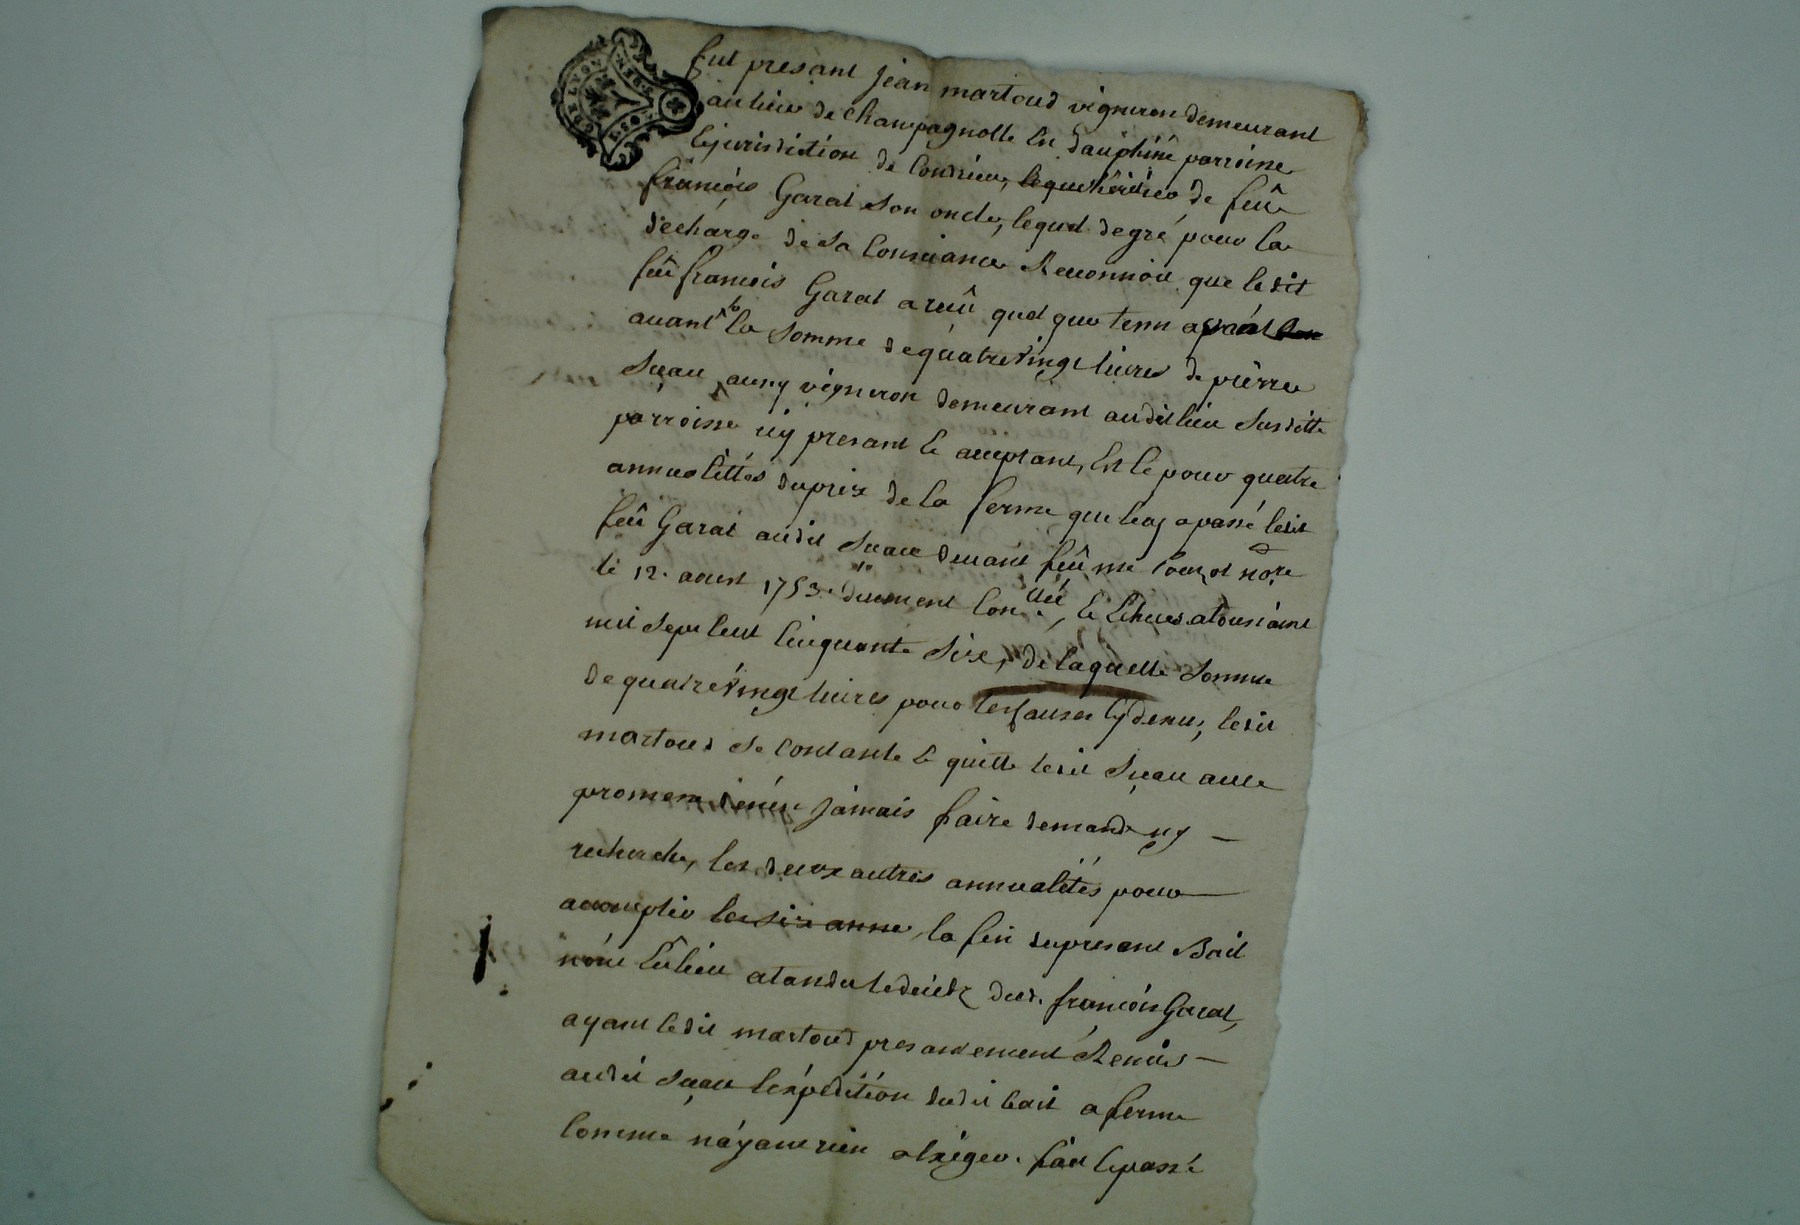 GDE LYON
fut presant jean martoud vigneron demeurant
au lieu de Champagnolle En dauphiné parroisse
Ejurisdiction de Condrieu, heritier de feû
françois Garat son oncle, lequel de gré pour la
décharge de sa Consciance Reconnoit que ledit
feû françois Garat a reçû quel que tems
avant la somme de quatrevingt livres de pierre
aussy vigneron demeurant audit lieu susditte
parroisse icy presant E acceptant, Et ce pour quatre
annualittés du prix de la ferme que luy a passé ledit
feû Garat audit devant feû me no.re
le 12. aoust 1753. duement Con.llé, E Echues a toussaint
mil sept Cent Cinquante Six, de laquelle somme
de quatrevingt livres pour les causes cy dessus, ledit
martoud se contante E quitte ledit avec
promesse jamais faire demande ny
recherche, les deux autres annualités pour
accomplir les six anne la fin du presant Bail
n'ont Eû lieu atandu le décés dud. françois Garat,
ayant ledit martoud presantement Remis
audit l'expedition dudit bail a ferme
Comme n'ayant rien a Exiger. fait E passé